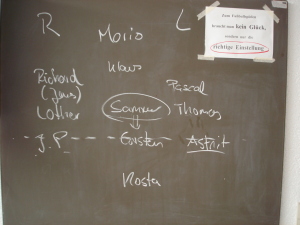 R
L
Mario
Klaus
Richard
(Jens)
Lothar
Pascal
Sammer
Thomas
J.P
Carsten
Astrit
Kosta
Zum Fußballspielen
braucht man kein Glück,
sondern nur die
richtige Einstellung